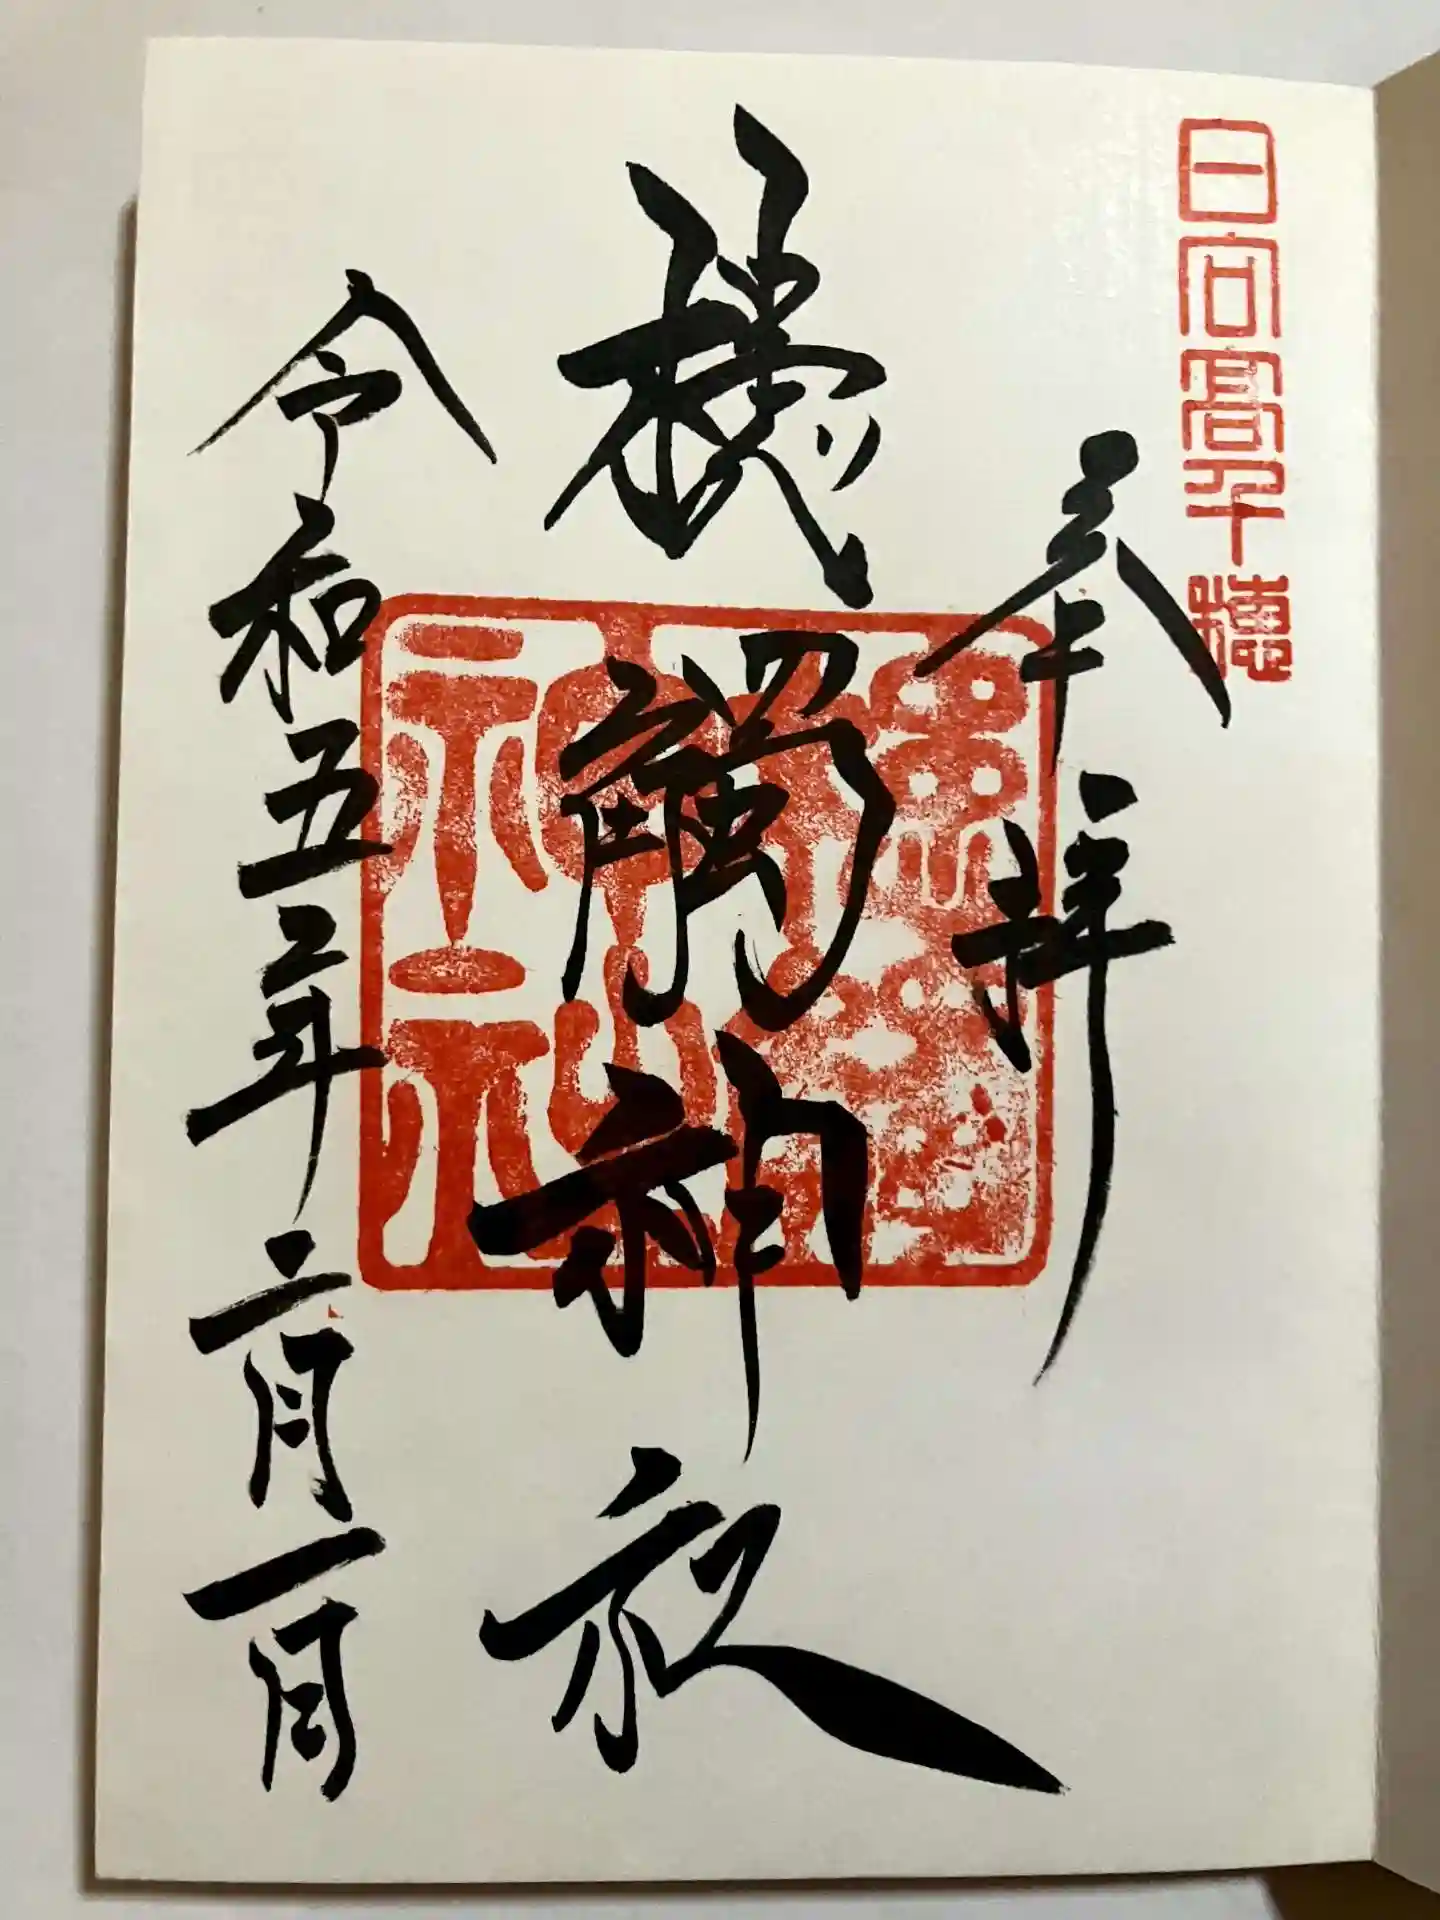 日向高千穂
奉拝
槵觸神社
令和五年二月一日